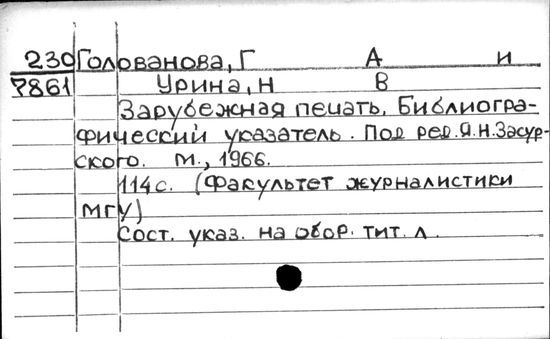 230 Голованова, Г А и
7861 Урина, Н В
Зарубежная печать. Библиогра-
фический указатель. Под ред. Я.Н.Засур-
ского. М., 1966.
114с. (Факультет журналистики
МГУ)
Сост. указ. на обор. тит. л.